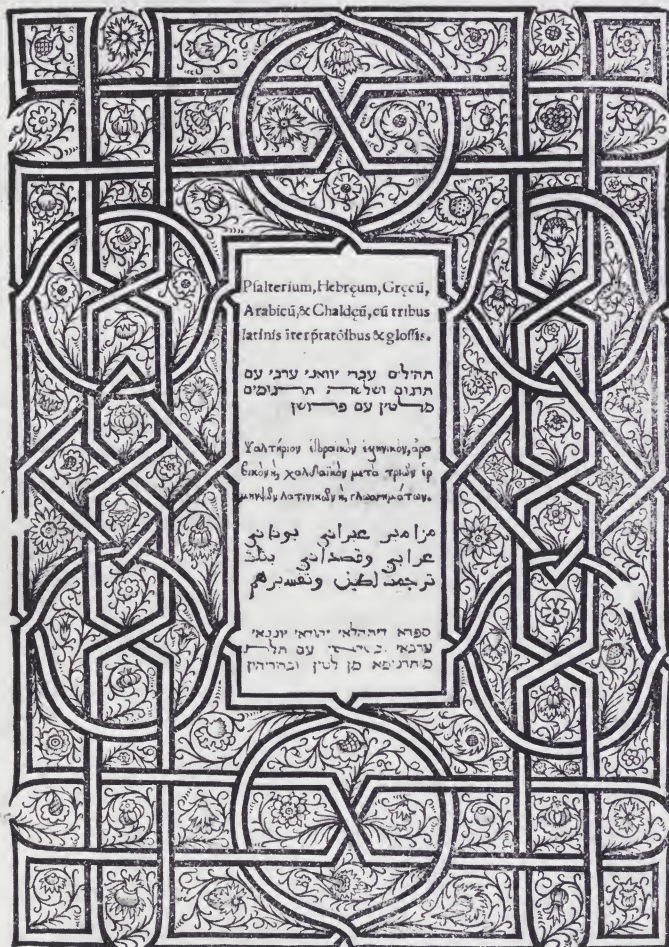 Pſalterium, Hebręum, Gręcū,
Arabicū, & Chaldęū, cū tribus
latinis īterp̃ratōibus & gloſſis.
תהילים עברי יוואני ערבי עם
תרגום ושלשה תרגומים
מלטין עם פרושן
Ψαλτήριον ἑβραικὸν ἑλληνικὸν, ἀρα
βικὸν κ̀, χαλδαικὸν μετὰ τριῶν ἑρ
μηνειῶν λατινικῶν κ̀, γλωσημάτων.
مزامير عبراني يوناني
عرابي وقصداني بثلث
ترجمت لطيني وتفسيرهم
ספרא דיתהלאי יהודאי יוונאי
ערבאי עם תלת
מן לטין